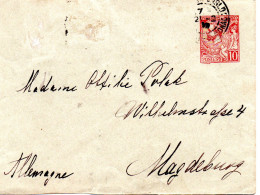 Madame Ottilie Polak
Wilhelmstrasse 4
Allemagne
Magdeburg
10